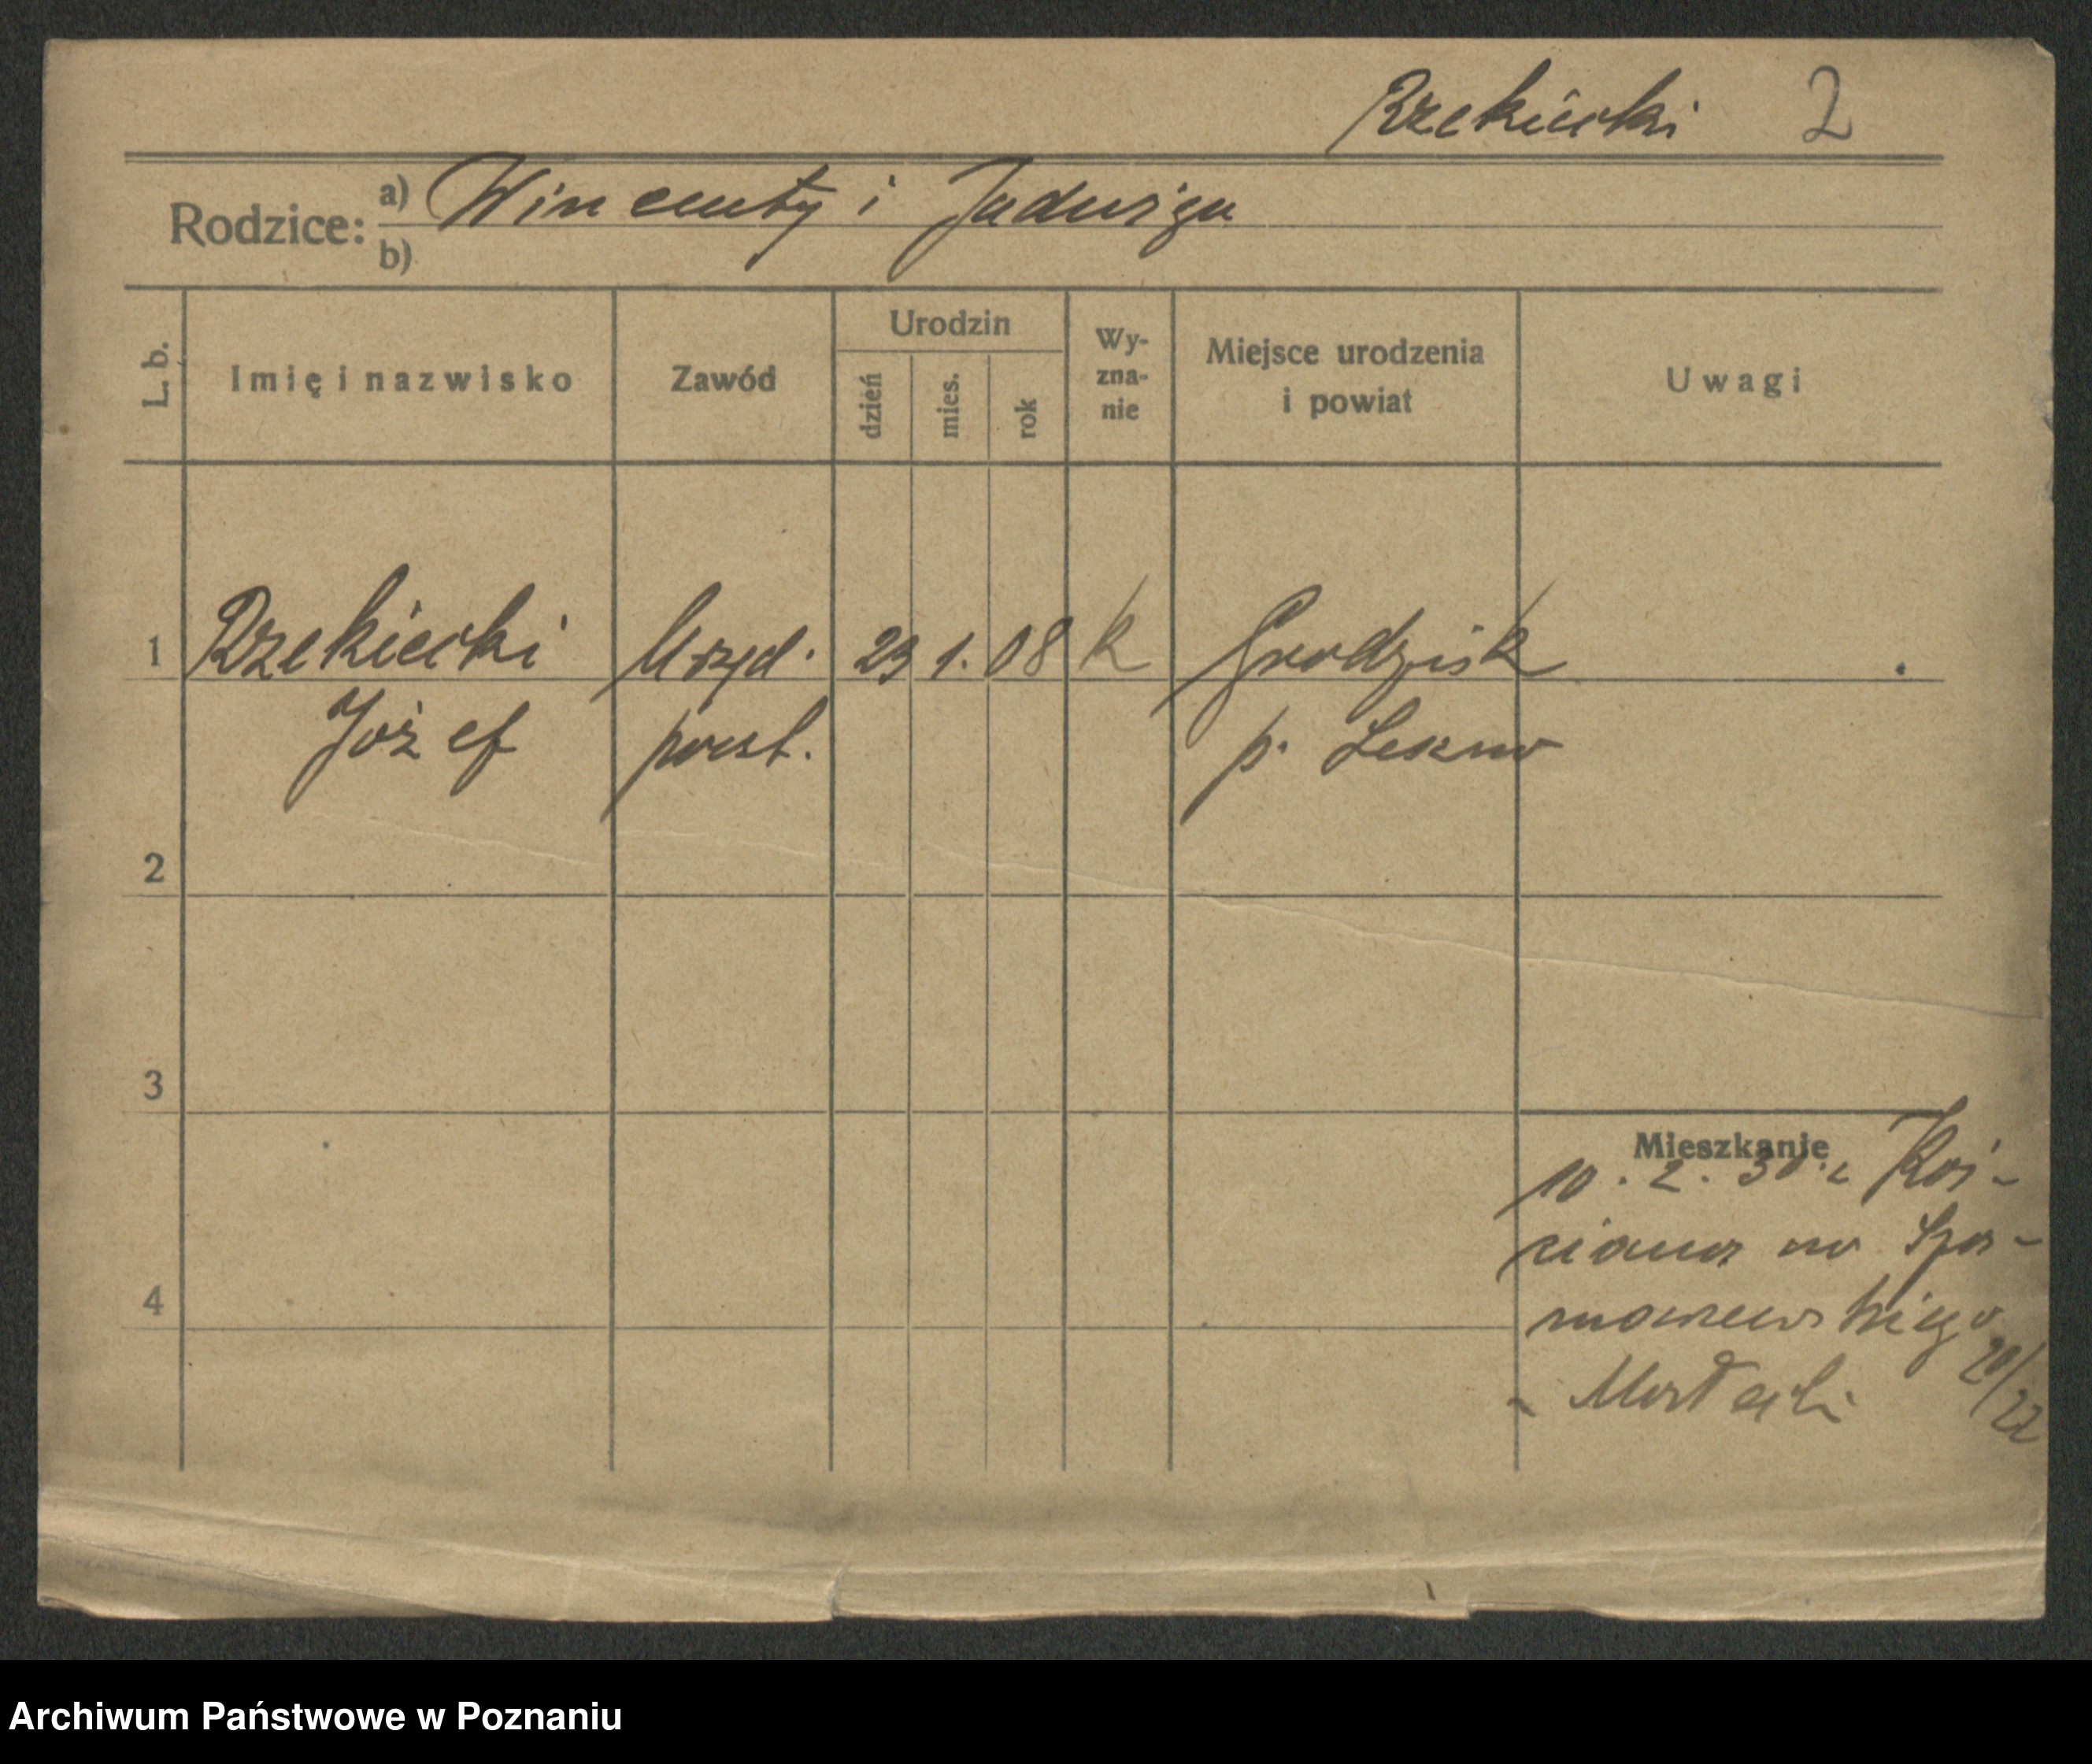 Rzekiecki 2
Rodzice: a) Wincenty i Jadwiga
b)
L. b. Imię i nazwisko Zawód Urodzin dzień mies. rok Wy-zna-nie Miejsce urodzenia i powiat Uwagi
1 Rzekiecki Urzęd. 23 1. 08 k Grodzisk
Józef poczt. p. Leszno
2
3
Mieszkanie
10. 2. 30 z Koś-
ciana
4
20/22
Archiwum Państwowe w Poznaniu